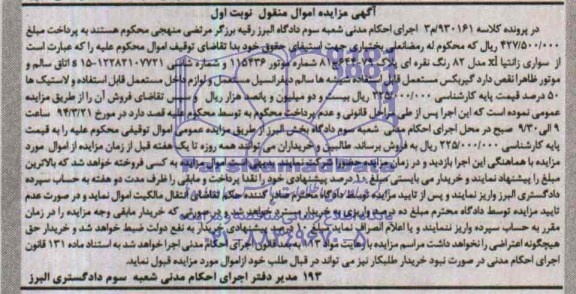 آگهی مزایده اموال منقول نوبت اول
در پرونده کلاسه ۹۳۰۱۶۱/م۳ اجرای احکام مدنی شعبه سوم دادگاه البرز رقیه برزگر مرتضی منهجی محکوم هستند به پرداخت مبلغ
۴۲۷/۵۰۰/۰۰۰ ریال که محکوم له رمضانعلی بختیاری جهت استیفای حقوق خود بدا تقاضای توقیف اموال محکوم علیه را که عبارت است
از سواری زانتیا xl مدل ۸۲ رنگ نقره ای پلاک ۷۹-۶۴۴ ۸۱ شماره موتور ۱۱۵۴۳۶ و شماره شاسی s۱۵-۱۲۲۸۳۱۰۷۷۲۱ اتاق سالم و
موتور ظاهرا نقص دارد گیربکس مستعمل قابل شیشه ها سالم دیفرانسیل و لوازم داخل مستعمل قابل استفاده و لاستیک ها
۵۰ درصد قیمت پایه کارشناسی ۲۲۵/۰۰۰/۰۰۰ ریال بیست و دو میلیون و پانصد هزار ریال و سپس تقاضای فروش آن را از طریق مزایده
عمومی نموده است که این اجرا پس از طی مراحل قانونی و عدم پرداخت محکوم به توسط محکوم علیه قصد دارد در مورخ ۹۴/۳/۲۱ ساعت
۹ الی ۹/۳۰ صبح در محل اجرای احکام مدنی شعبه سوم دادگاه بخش البرز از طریق مزایده عمومی اموال توقیفی محکوم علیه را به قیمت
پایه کارشناسی ۲۲۵/۰۰۰/۰۰۰ ریال به فروش برساند. طالبین و خریداران می توانند همه روزه تا یک هفته قبل از زمان مزایده از اموال مورد
مزایده با هماهنگی این اجرا بازدید و در زمان مزایده حضورا شرکت نمایند بدیهی است اموال مزایده به کسی فروخته خواهد شد که بالاترین
مبلغ را پیشنهاد نمایند و خریدار می بایستی مبلغ ۱۰ درصد پیشنهادی خود را نقدا پرداخت و مابقی را ظرف مدت دو هفته به حساب سپرده
دادگستری البرز واریز نمایند و پس از تایید مزایده توسط دادگاه محترم صادر کننده حکم تقاضای انتقال مالکیت اموال نماید و در صورت عدم
تایید مزایده توسط دادگاه محترم مبلغ ده درصد که خریدار مابقی وجه مزایده را در زمان
مقرر به حساب سپرده واریز ننمایند و یا اعلام انصراف نماید مبلغ ۱۰ درصد پیشنهادی خریدار به نفع دولت ضبط خواهد شد و خریدار حق
هیچگونه اعتراضی را نخواهد داشت مراسم مزایده با رعایت مواد اجرای احکام مدنی اجرا خواهد شد به استناد ماده ۱۳۱ قانون
اجرای احکام مدنی در صورت نبود خریدار طلبکار نیز می تواند در قبال طلب خود از اموال مورد مزایده قبول نماید.
۱۹۳ مدیر دفتر اجرای احکام مدنی شعبه سوم دادگستری البرز